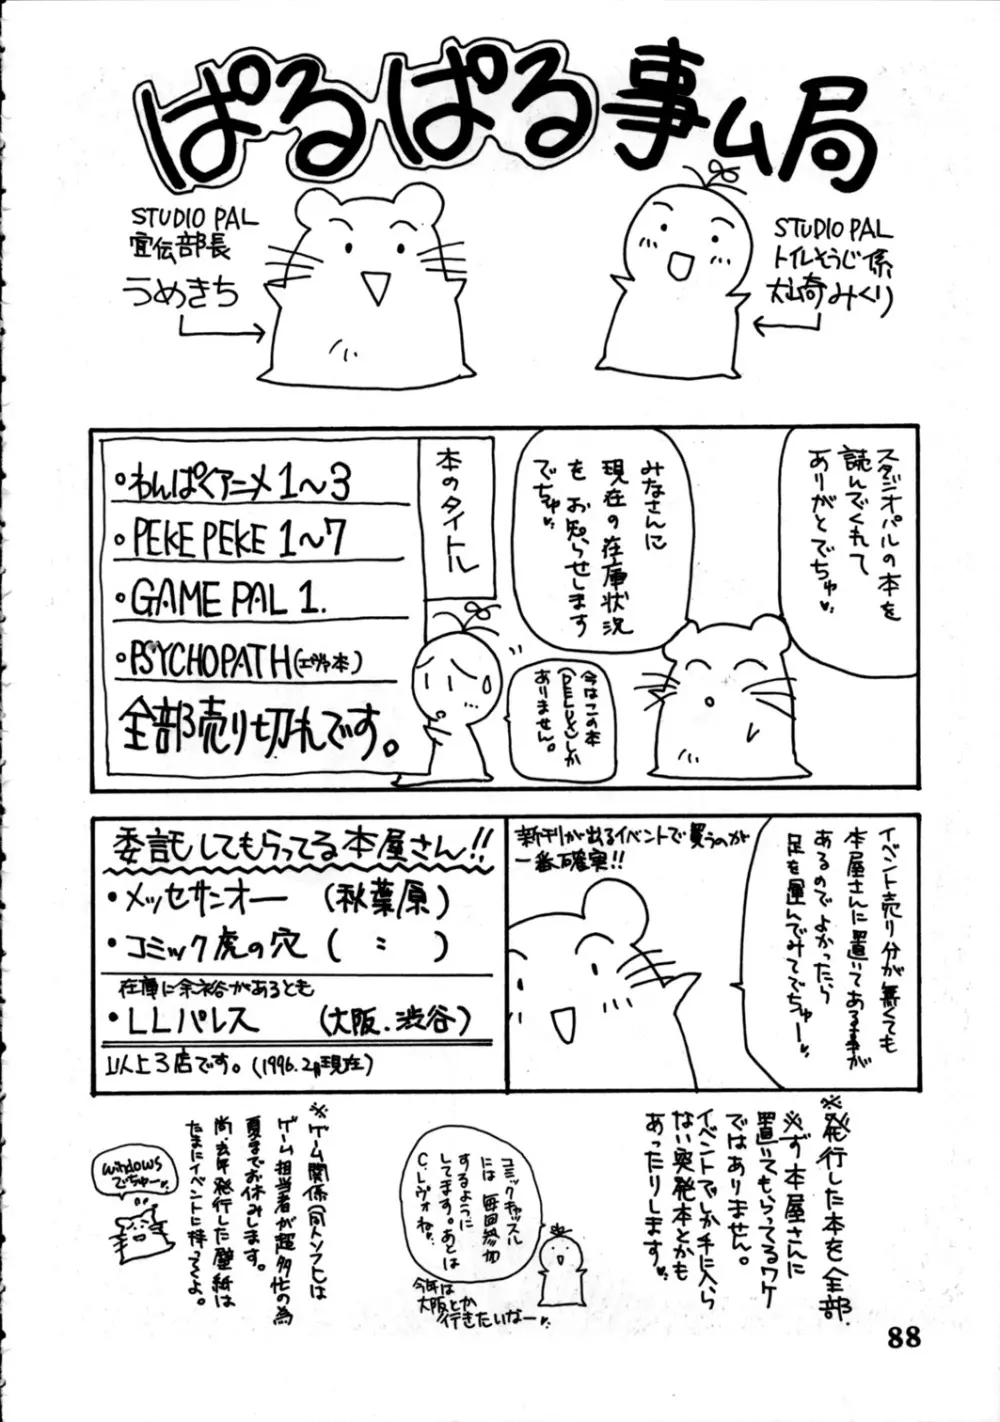 ぱるぱる事ム局
STUDIO PAL
宣伝部長
うめきち
STUDIO PAL
トイレそうじ係
犬山奇みくり
スタジオパルの本を
読んでくれて
ありがとでちゅ
みなさんに
現在の在庫状況
を お知らせします
でちゅ
今はこの本
(DELUX)しか
ありません。
本のタイトル
・わんぱくアニメ1〜3
・PEKE PEKE 1〜7
・GAME PAL 1.
・PSYCHOPATH(エヴァ本)
全部売り切れです。
イベント売り分が無くても
本屋さんに置いてある事が
あるのでよかったら
足を運んでみてでちゅー
新刊が出るイベントで買うのが
一番確実!!
委託してもらってる本屋さん!!
・メッセサンオー (秋葉原)
・コミック虎の穴 ( 〃 )
在庫に余裕があるとも
・LLパレス (大阪.渋谷)
以上3店です。(1996.2月現在)
※発行した本を全部
※ず本屋さんに
置いてもらってるワケ
ではありません。
イベントでしか手に入ら
ない突発本とかも
あったりします
コミックキャッスル
には毎回参加
するように
してます。あとは
C.レヴォね。
今年は
大阪とか
行きたいなー
※ゲーム関係(同人ソフト)は
ゲーム担当者が超多忙の為
夏までお休みします。
尚、去年発行した壁紙は
たまにイベントに持ってくよ。
windows
でちゅー
88